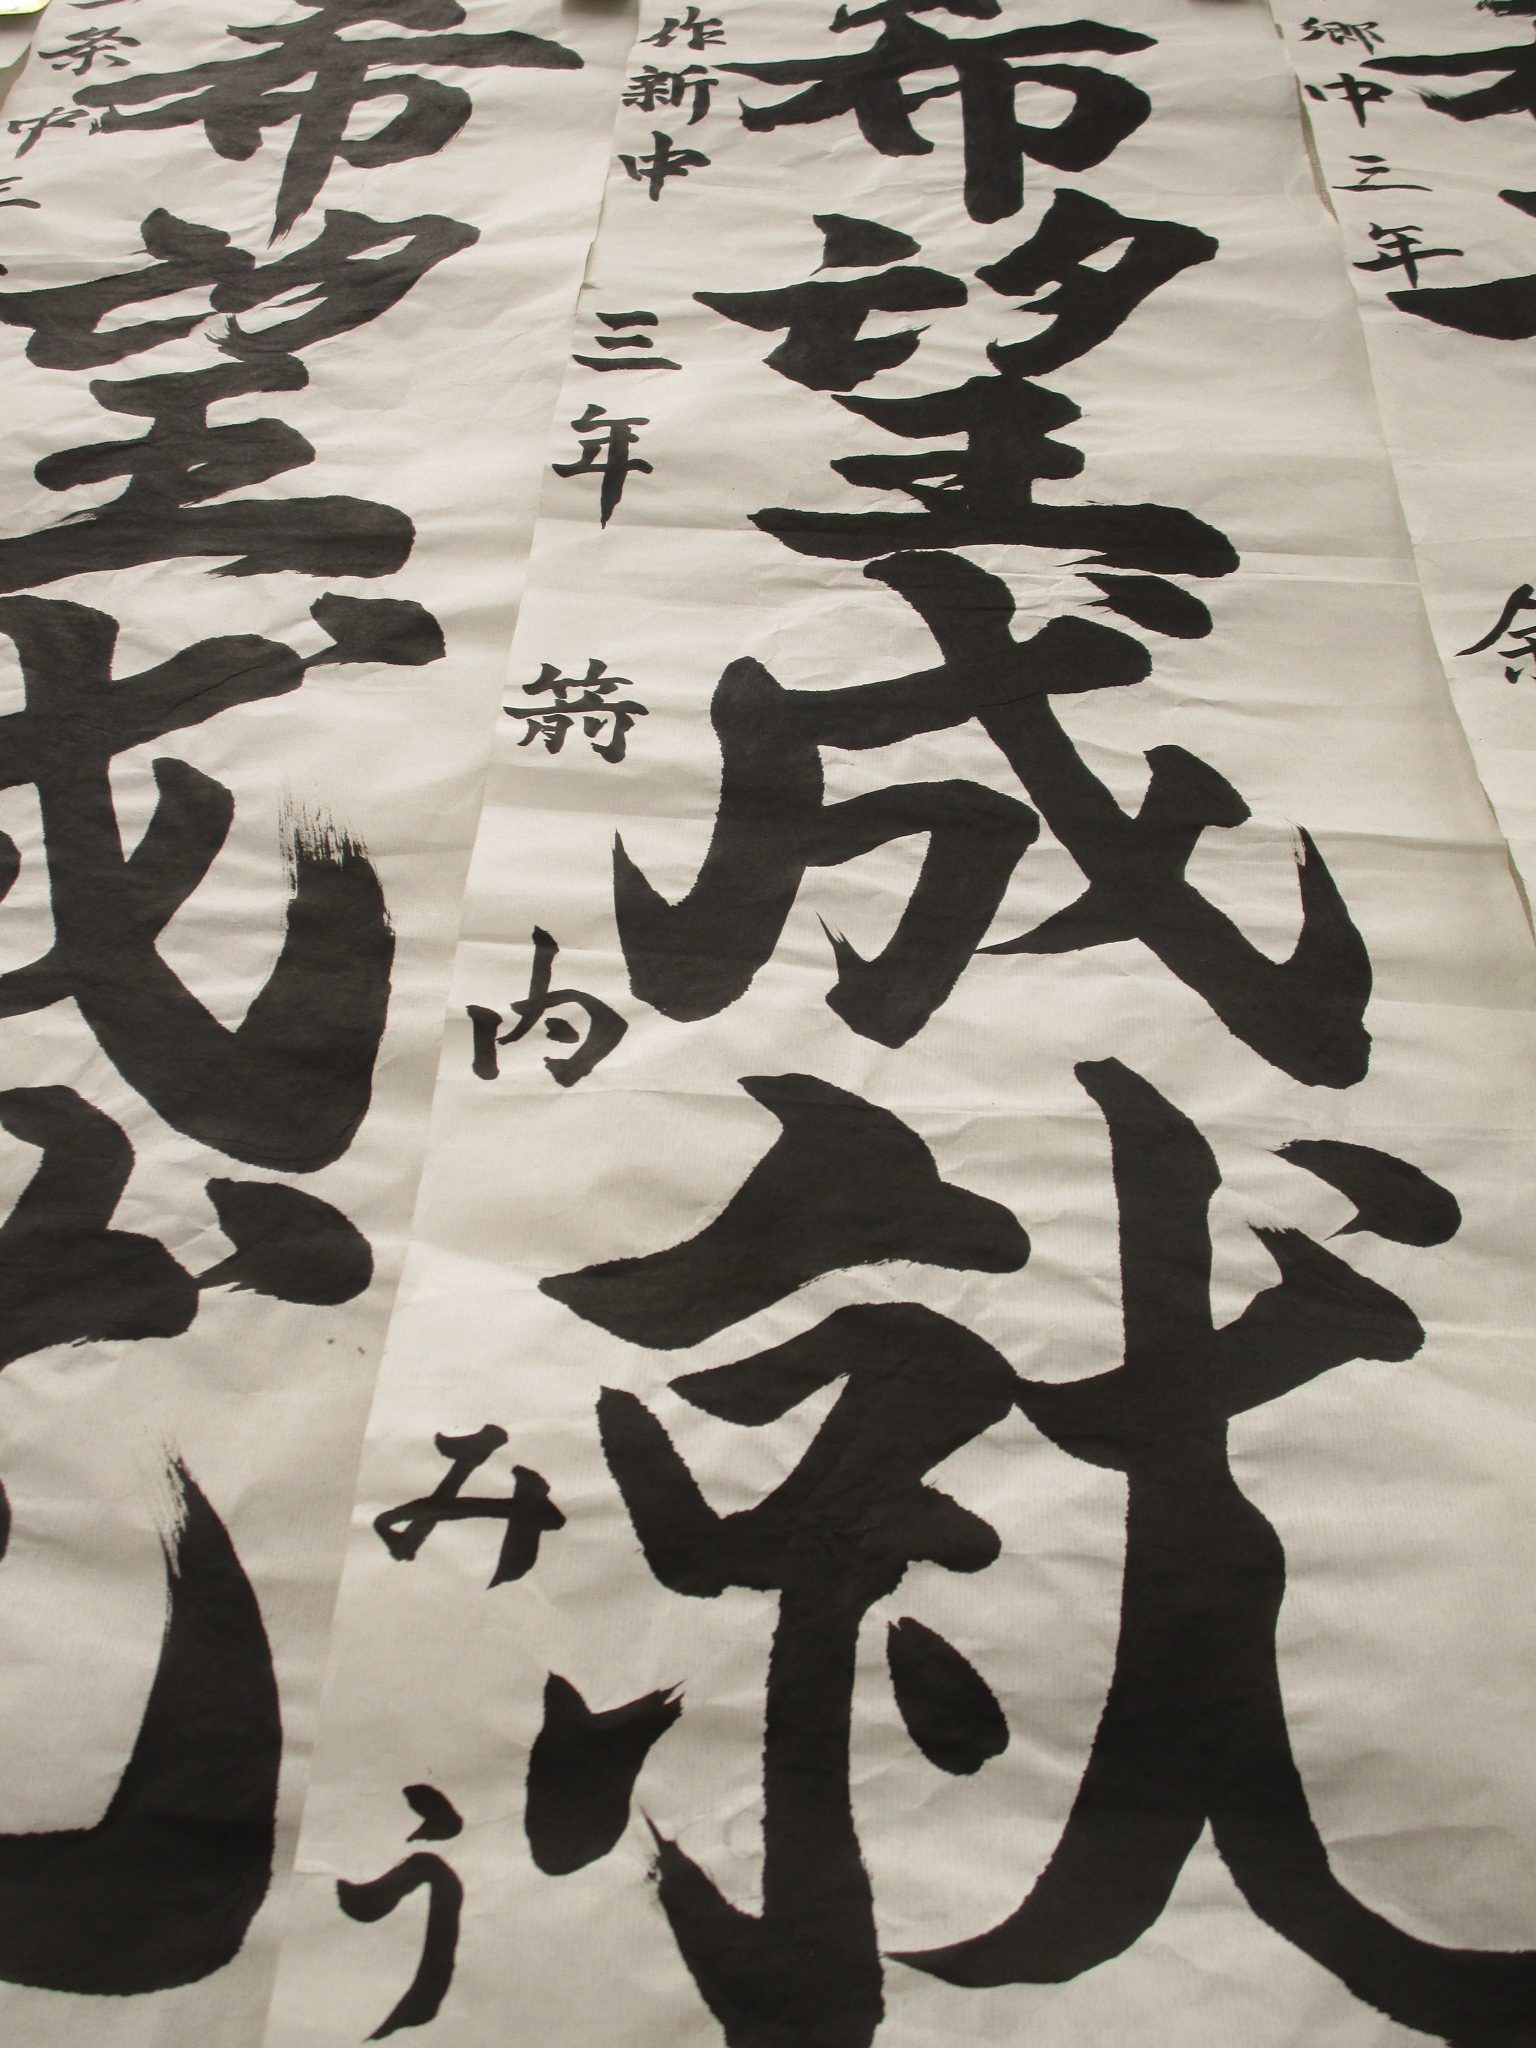 郷中三年
希望成就
作新中三年 箭内みう
希望成就
条中三